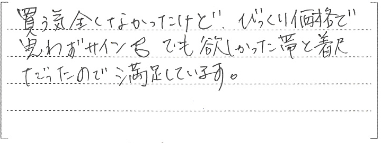 買う気全くなかったけど!! びっくり価格で
思わずサイン(笑) でも欲しかった帯と着尺
だったので満足しています。